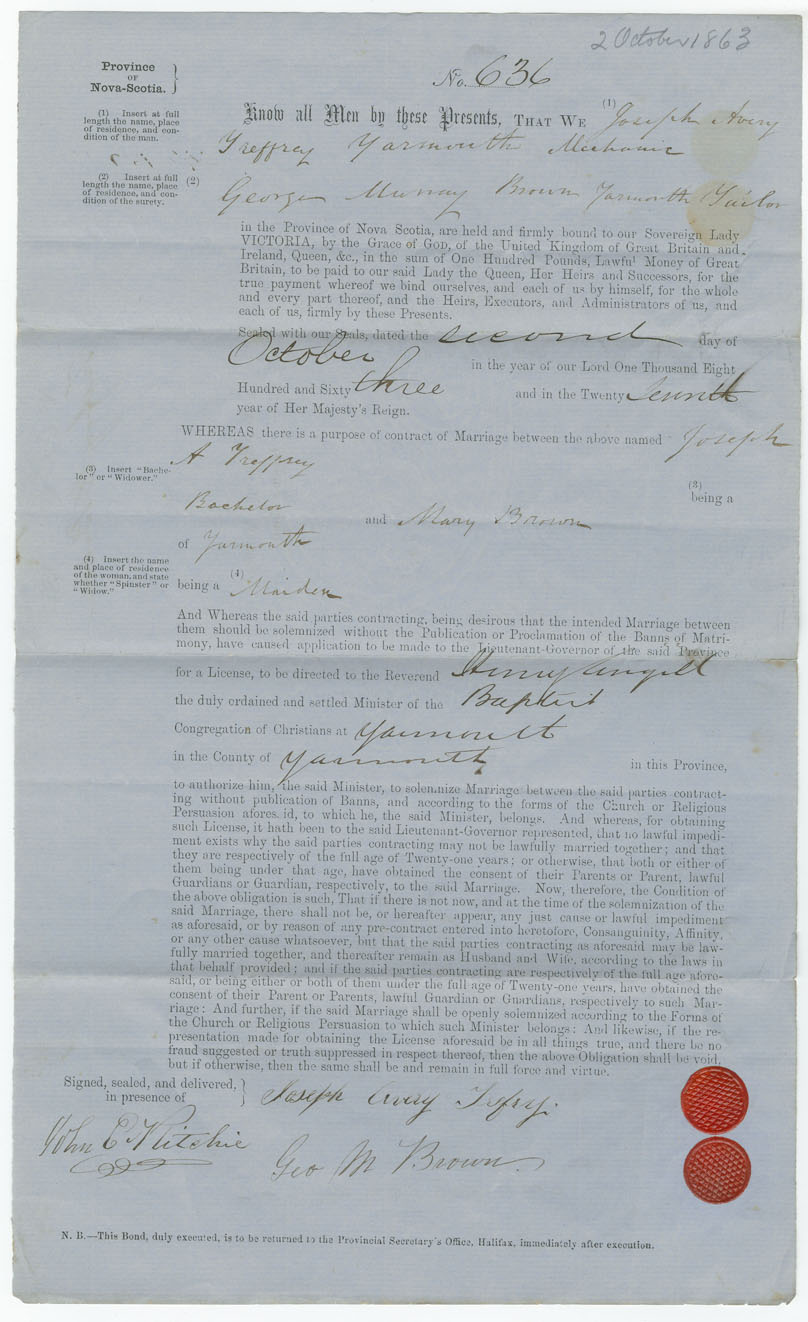 2 October 1863
Province
OF
Nova-Scotia.
No. 636
(1) Insert at full
length the name, place
of residence, and con-
dition of the man.
Know all Men by these Presents, THAT WE (1) Joseph Avery
Treffrey Yarmouth Mechanic
(2) Insert at full
length the name, place
of residence, and con-
dition of the surety.
(2)
George Murray Brown Yarmouth Tailor
in the Province of Nova Scotia, are held and firmly bound to our Sovereign Lady
VICTORIA, by the Grace of GOD, of the United Kingdom of Great Britain and
Ireland, Queen, &c., in the sum of One Hundred Pounds, Lawful Money of Great
Britain, to be paid to our said Lady the Queen, Her Heirs and Successors, for the
true payment whereof we bind ourselves, and each of us by himself, for the whole
and every part thereof, and the Heirs, Executors, and Administrators of us, and
each of us, firmly by these Presents.
Sealed with our Seals, dated the second day of
October in the year of our Lord One Thousand Eight
Hundred and Sixty three and in the Twenty Seventh
year of Her Majesty's Reign.
WHEREAS there is a purpose of contract of Marriage between the above named Joseph
A Treffrey
(3) Insert "Bache-
lor" or "Widower."
(3)
being a
Bachelor and Mary Brown
of Yarmouth
(4) Insert the name
and place of residence
of the woman, and state
whether "Spinster" or
"Widow."
being a (4) Maiden
And Whereas the said parties contracting, being desirous that the intended Marriage between
them should be solemnized without the Publication or Proclamation of the Banns of Matri-
mony, have caused application to be made to the Lieutenant-Governor of the said Province
for a License, to be directed to the Reverend Henry Angell
the duly ordained and settled Minister of the Baptist
Congregation of Christians at Yarmouth
in the County of Yarmouth in this Province,
to authorize him, the said Minister, to solemnize Marriage between the said parties contract-
ing without publication of Banns, and according to the forms of the Church or Religious
Persuasion afores. id, to which he, the said Minister, belongs. And whereas, for obtaining
such License, it hath been to the said Lieutenant-Governor represented, that no lawful impedi-
ment exists why the said parties contracting may not be lawfully married together; and that
they are respectively of the full age of Twenty-one years; or otherwise, that both or either of
them being under that age, have obtained the consent of their Parents or Parent, lawful
Guardians or Guardian, respectively, to the said Marriage. Now, therefore, the Condition of
the above obligation is such, That if there is not now, and at the time of the solemnization of the
said Marriage, there shall not be, or hereafter appear, any just cause or lawful impediment
as aforesaid, or by reason of any pre-contract entered into heretofore, Consanguinity, Affinity,
or any other cause whatsoever, but that the said parties contracting as aforesaid may be law-
fully married together, and thereafter remain as Husband and Wife, according to the laws in
that behalf provided; and if the said parties contracting are respectively of the full age afore-
said, or being either or both of them under the full age of Twenty-one years, have obtained the
consent of their Parent or Parents, lawful Guardian or Guardians, respectively to such Mar-
riage: And further, if the said Marriage shall be openly solemnized according to the Forms of
the Church or Religious Persuasion to which such Minister belongs: And likewise, if the re-
presentation made for obtaining the License aforesaid be in all things true, and there be no
fraud suggested or truth suppressed in respect thereof, then the above Obligation shall be void,
but if otherwise, then the same shall be and remain in full force and virtue.
Signed, sealed, and delivered,
in presence of
Joseph Avery Trefry.
John E Ritchie
Geo M Brown
N. B.—This Bond, duly executed, is to be returned to the Provincial Secretary's Office, Halifax, immediately after execution.